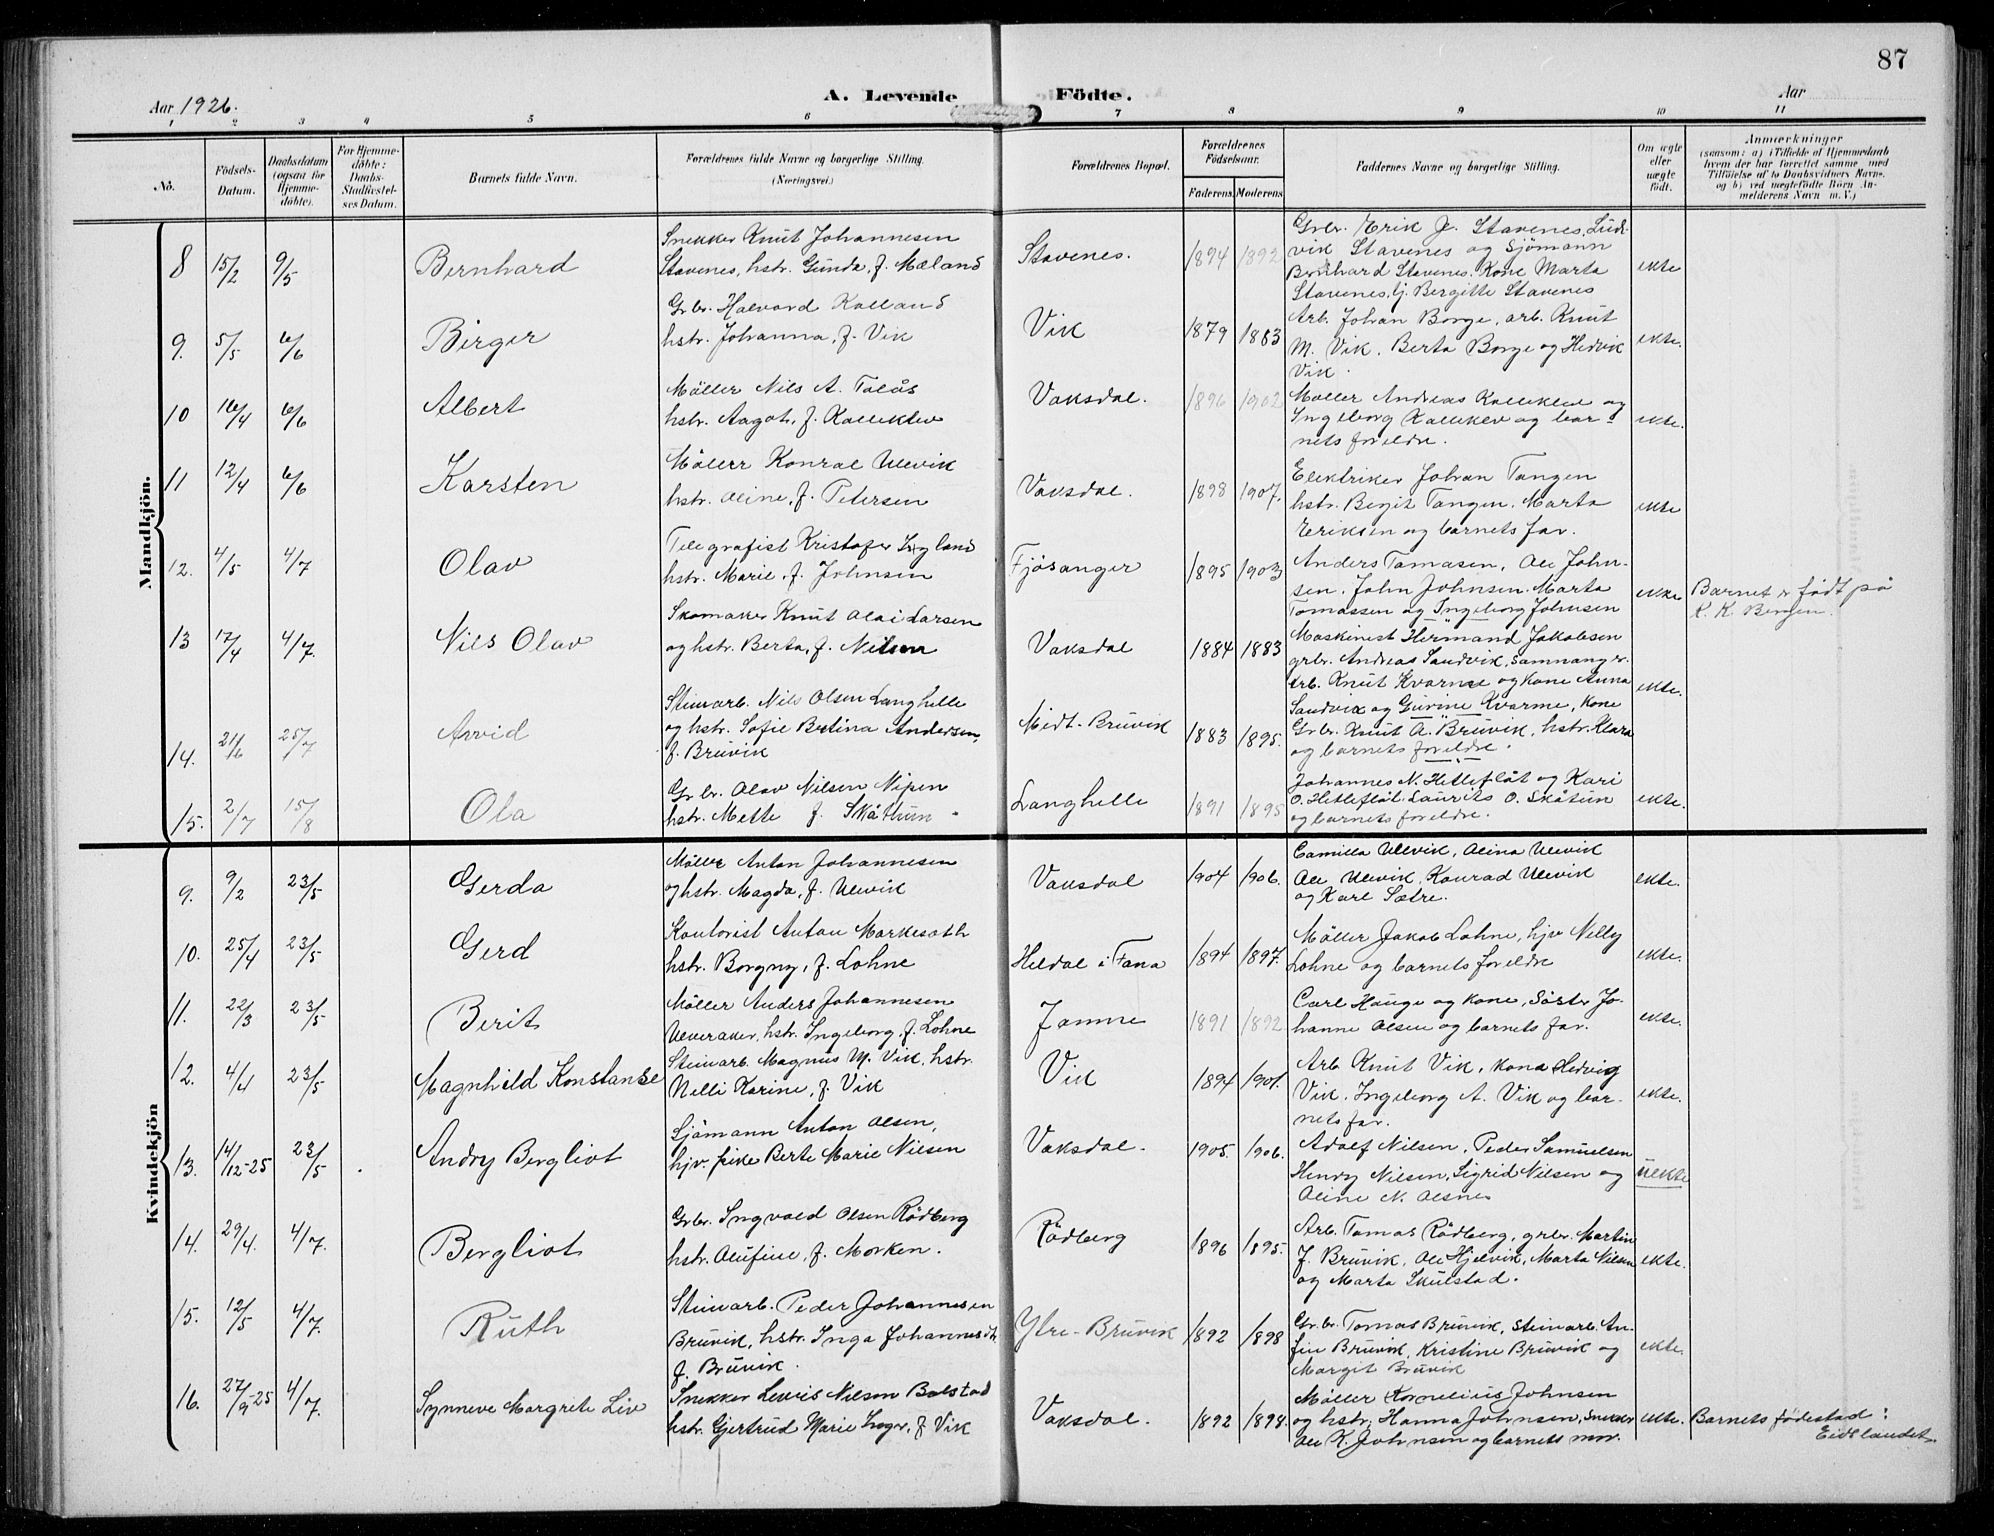 87
Aar 1926.
A. Levende Födte.
Aar
1 2 3 4 5 6 7 8 9 10 11
No.
Födsels-
Datum.
Daabsdatum
(ogsaa for
Hjemme-
döbte).
For Hjemme-
döbte:
Daabs-
Stadfæstel-
ses Datum.
Barnets fulde Navn.
Forældrenes fulde Navne og borgerlige Stilling.
(Næringsvei.)
Forældrenes Bopæl.
Forældrenes
Födselsaar.
Faderens. Moderens.
Faddernes Navne og borgerlige Stilling.
Om ægte
eller
uægte
födt.
Anmærkninger
(saasom: a) i Tilfælde af Hjemmedaab
hvem der har forrettet samme, med
Tilföielse af to Daabsvidners Navne,
og b) ved uægtefödte Börn An-
melderens Navn m. V.)
Mandkjön.
8 15/2 9/5 Bernhard
Snekker Knut Johannesen
Stavenes, hstr. Gunda, f. Mæland
Stavenes. 1894 1892
Grbr. Erik J. Stavenes, Lud-
vik Stavenes og Sjömann
Bernhard Stavenes. Kone Marta
Stavenes, Bergitte Stavenes
ekte
9. 5/5 6/6 Birger
Grbr. Halvard Kalland
hstr. Johanna, f. Vik
Vik 1879 1883
Arb. Johan Borge, arb. Knut
M. Vik, Berta Borge og Hedvik
Vik.
ekte.
10 16/4 6/6 Albert
Möller Nils A. Talås
hstr. Aagot, f. Kalleklev
Vaksdal. 1896 1902
Möller Andreas Kalleklev og
Ingeborg Kalleklev og bar-
nets foreldre.
ekte.
11 12/4 6/6 Karsten
Möller Konrad Ulevik
hstr. Aline, f. Petersen
Vaksdal. 1898 1907.
Elektriker Johan Tangen
hstr. Bergit Tangen, Marta
Eriksen og barnets far.
ekte
12. 4/5 4/7 Olav
Telegrafist Kristofer
hstr. Marie, f. Johnsen
Fjösanger 1895 1903
Anders Tomasen, Ole John-
sen, John Johnsen, Marta
Tomassen og Ingeborg Johnsen
ekte
Barnet er födt på
K. K. Bergen.
13 17/4 4/7. Nils Olav
Skomaker Knut Olai Larsen
og hstr. Berta, f. Nilsen
Vaksdal 1884 1883
Maskinist Hermand Jakobsen
grbr. Andreas Sandvik, Samnanger.
arb. Knut Kvamme og kone Anna
Sandvik og Gurine Kvamme, kone
ekte.
14. 21/6 25/7 Arvid
Steinarb. Nils Olsen Langhelle
og hstr. Sofie Betina Andersen,
f. Bruvik
Midt-Bruvik 1883 1895.
Grbr. Knut A. Bruvik, hstr. Klara
og barnets foreldre.
15. 2/7 15/8 Ola
Grbr. Olav Nilsen Nipen
hstr. Mette f. Skåthun
Langhelle 1891 1895
Johannes N. Hetleflåt og Kari
O. Hetleflåt. Laurits O. Skåtun
og barnets foreldre.
ekte.
Kvindekjön
9. 9/2 23/5 Gerda
Möller Anton Johannesen
og hstr. Magda, f. Ulevik
Vaksdal 1904 1906.
Camilla Ulevik, Alina Ulevik
Ole Ulevik, Konrad Ulevik
og Karl Sætre.
ekte.
10. 25/4 23/5 Gerd
Kontorist Anton
hstr. Borgny, f. Lohne
Heldal i Fana 1894 1897.
Möller Jakob Lohne, hjv Nelly
Lohne og barnets foreldre
ekte.
11. 22/3 23/5 Berit
Möller Anders Johannesen
Ulveraker, hstr. Ingeborg, f. Lohne
Jamne 1891 1892
Carl Hauge og kone, Söster Jo-
hanne Olsen og barnets far.
ekte.
12. 4/4 23/5 Magnhild Konstanse
Steinarb. Magnus M. Vik, hstr.
Nelli Karine, f. Vik
Vik 1894 1901.
Arb. Knut Vik, kona Hedvig
Vik, Ingeborg A. Vik og bar-
nets far.
ekte.
13. 14/12-25 23/5 Andry Bergliot
Sjömann Anton Olsen,
hjv. pike Berte Marie Nielsen
Vaksdal. 1905. 1906.
Adolf Nilsen, Peder Samuelsen
Henry Nilsen, Sigrid Nilsen og
Aline N. Olsnes
uekte
14. 29/4. 4/7. Bergliot
Grbr. Ingvald Olsen Rödberg
hstr. Olufine, f. Morken.
Rödberg 1896 1895.
Arb. Tomas Rödberg, grbr. Martin
J. Bruvik, Ole Hjelvik, Marta Nilsen
og Marta Skulstad.
ekte.
15. 12/5 4/7. Ruth
Steinarb. Peder Johannesen
Bruvik, hstr. Inga Johannesdt.
f. Bruvik.
Ytre-Bruvik 1892 1898
Grbr. Tomas Bruvik, steinarb. An-
fin Bruvik, Kristine Bruvik og
Margit Bruvik
ekte.
16. 27/9-25 4/7. Synneve Margrete Liv
Snekker Nilsen Bolstad
hstr. Gjertrud Marie f. Vik
Vaksdal. 1892 1894.
Möller Kornelius Johnsen
og hstr. Hanna Johnsen, snekker
Ole K. Johnsen og barnets mor.
ekte.
Barnets födestad:
Eidslandet.